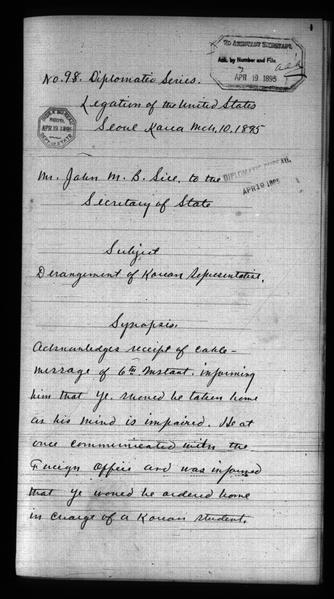 TO ASSISTANT SECRETARY,
Ack. by Number and File
APR 19 1895
No. 98. Diplomatic Series.
Legation of the United States
APR 19 1895
Seoul Korea Mch. 10. 1895
Mr. John M. B. Sill, to the
DIPLOMATIC BUREAU,
APR 19 1895
Secretary of State
Subject
Derangement of Korean Representative.
Synopsis.
Acknowledges receipt of cable-
message of 6th instant. informing
him that Ye. should be taken home
as his mind is impaired. He at
once communicated with the
Foreign Office and was informed
that Ye would be ordered home
in charge of a Korean student.